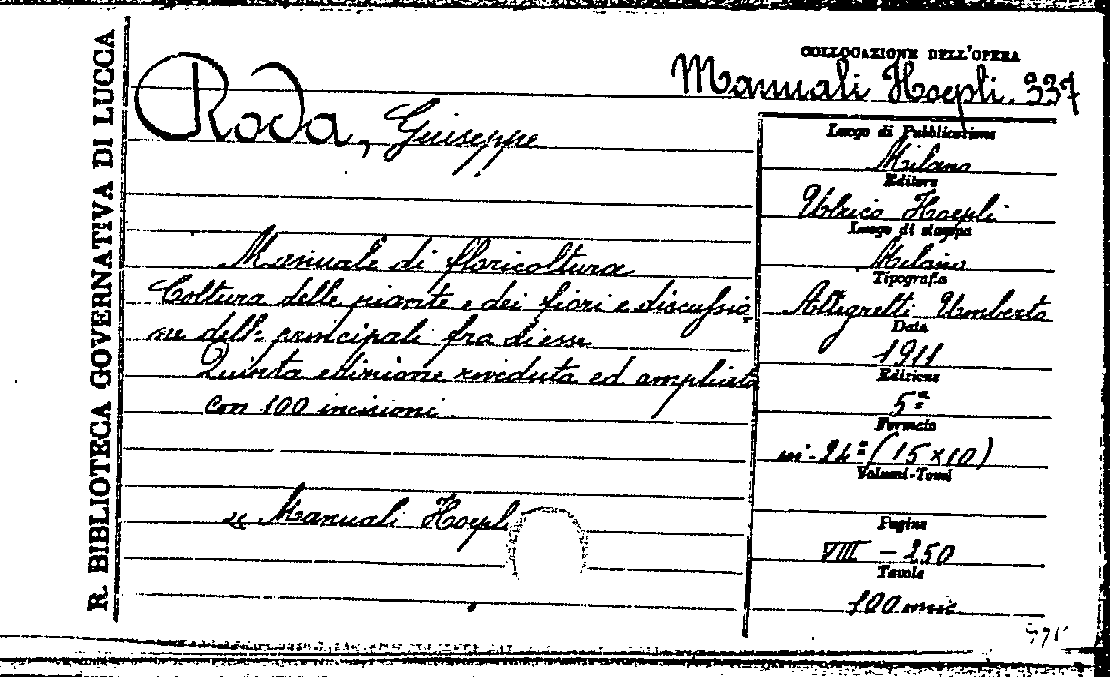 R. BIBLIOTECA GOVERNATIVA DI LUCCA
COLLOCAZIONE DELL'OPERA
Manuali Hoepli. 337
Roda, Giuseppe
Manuale di floricoltura
Coltura delle piante e dei fiori e discussio
ne delle principali fra di esse
Quinta edizione riveduta ed ampliata
con 100 incisioni
Manuali Hoepli
Luogo di Pubblicazione
Milano
Editore
Ulrico Hoepli
Luogo di stampa
Milano
Tipografia
Allegretti Umberto
Data
1911
Edizione
5ª
Formato
in-24° (15×10)
Volumi-Tomi
Pagine
VIII - 250
Tavole
100 incis